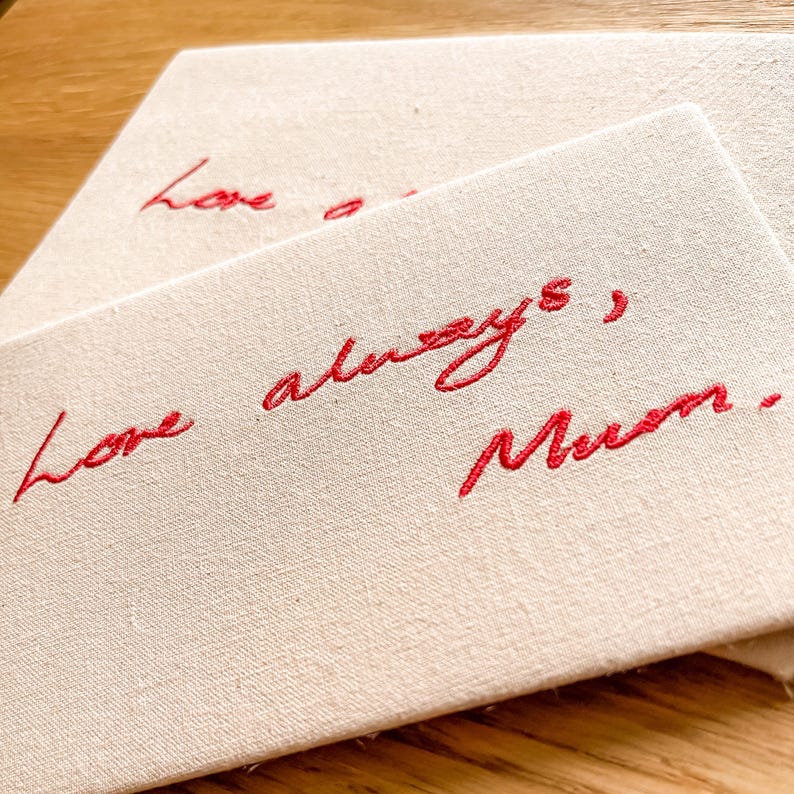 Love a
Love always,
Mum.